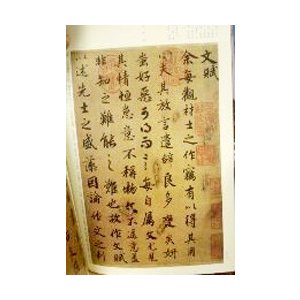 文賦
余每觀材士之作竊有以得其用
心夫其放言遣辭良多變矣妍
蚩好惡可得而言每自屬文尤見
其情恆患意不稱物文不逮意蓋
非知之難能之難也故作文賦
以述先士之盛藻因論作文之利